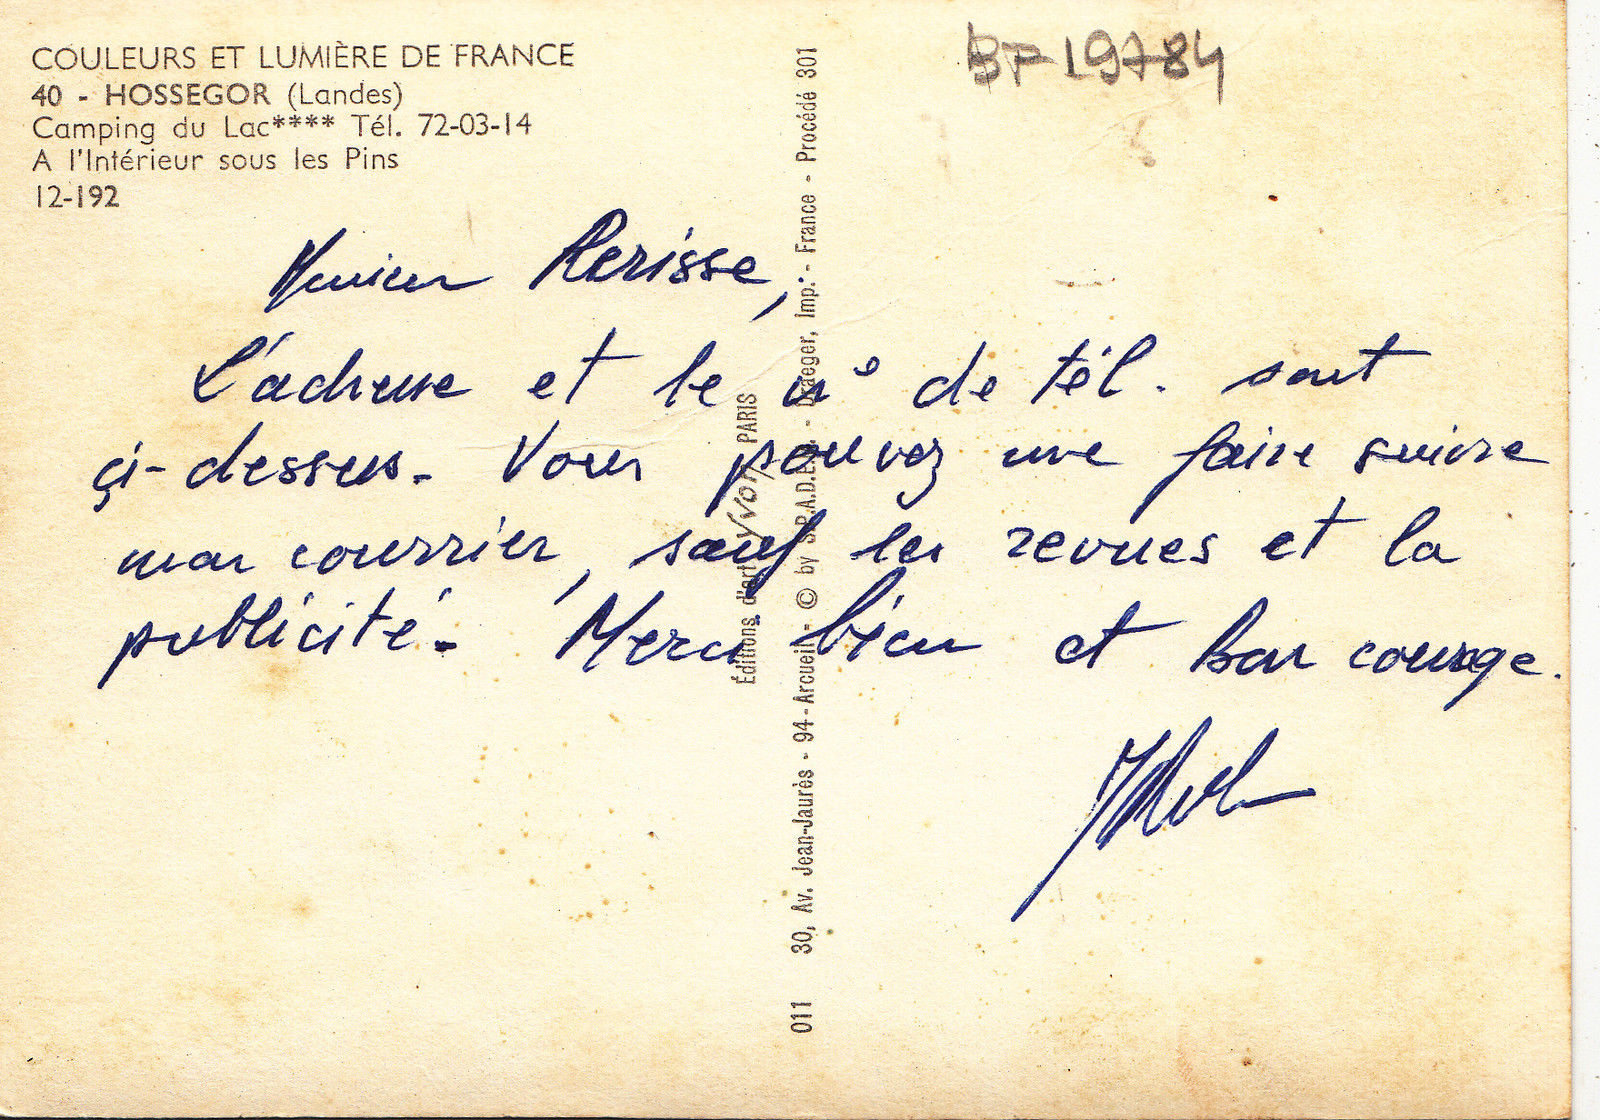 COULEURS ET LUMIÈRE DE FRANCE
40 - HOSSEGOR (Landes)
Camping du Lac**** Tél. 72-03-14
A l'Intérieur sous les Pins
12-192
BF 19784
Monsieur Rerisse,
L'adresse et le n° de tél. sont
çi-dessus. Vous pouvez me faire suivre
mon courrier, sauf les revues et la
publicité. Merci bien et bon courage.
Éditions d'art YVON PARIS
011 30, Av. Jean-Jaurès - 94-Arcueil - © by S.P.A.D.E.M. - Draeger, Imp. - France - Procédé 301